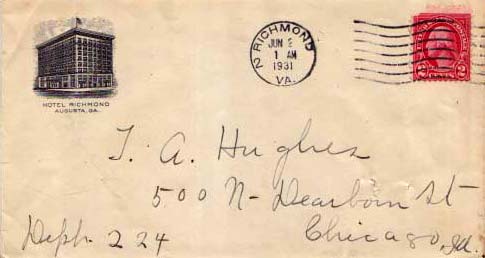 HOTEL RICHMOND
AUGUSTA, GA.
RICHMOND
2
JUN 2
1 AM
1931
VA.
T. A. Hughes
500 N- Dearborn St
Chicago, Ill.
Dept. 224